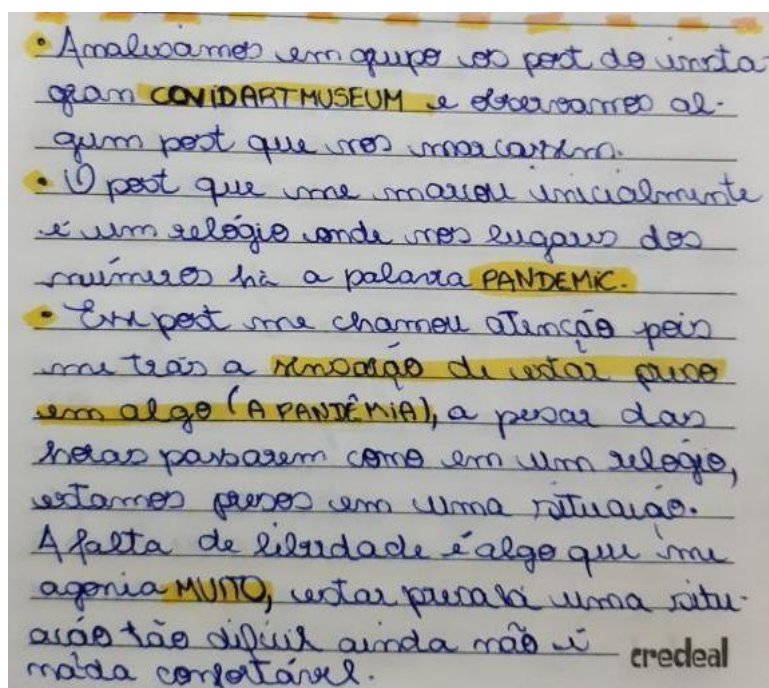 • Analisamos em grupo os post do insta-
gran COVIDARTMUSEUM e observamos al-
gum post que nos marcassem.
• O post que me marcou inicialmente
é um relógio onde nos lugares dos
números há a palavra PANDEMIC.
• Esse post me chamou atenção pois
me trás a sensação de estar preso
em algo (A PANDÊMIA), a pesar das
horas passarem como em um relógio,
estamos presos em uma situação.
A falta de liberdade é algo que me
agonia MUITO, estar presa uma situ-
ação tão difícil ainda não é
nada confortável.
credeal